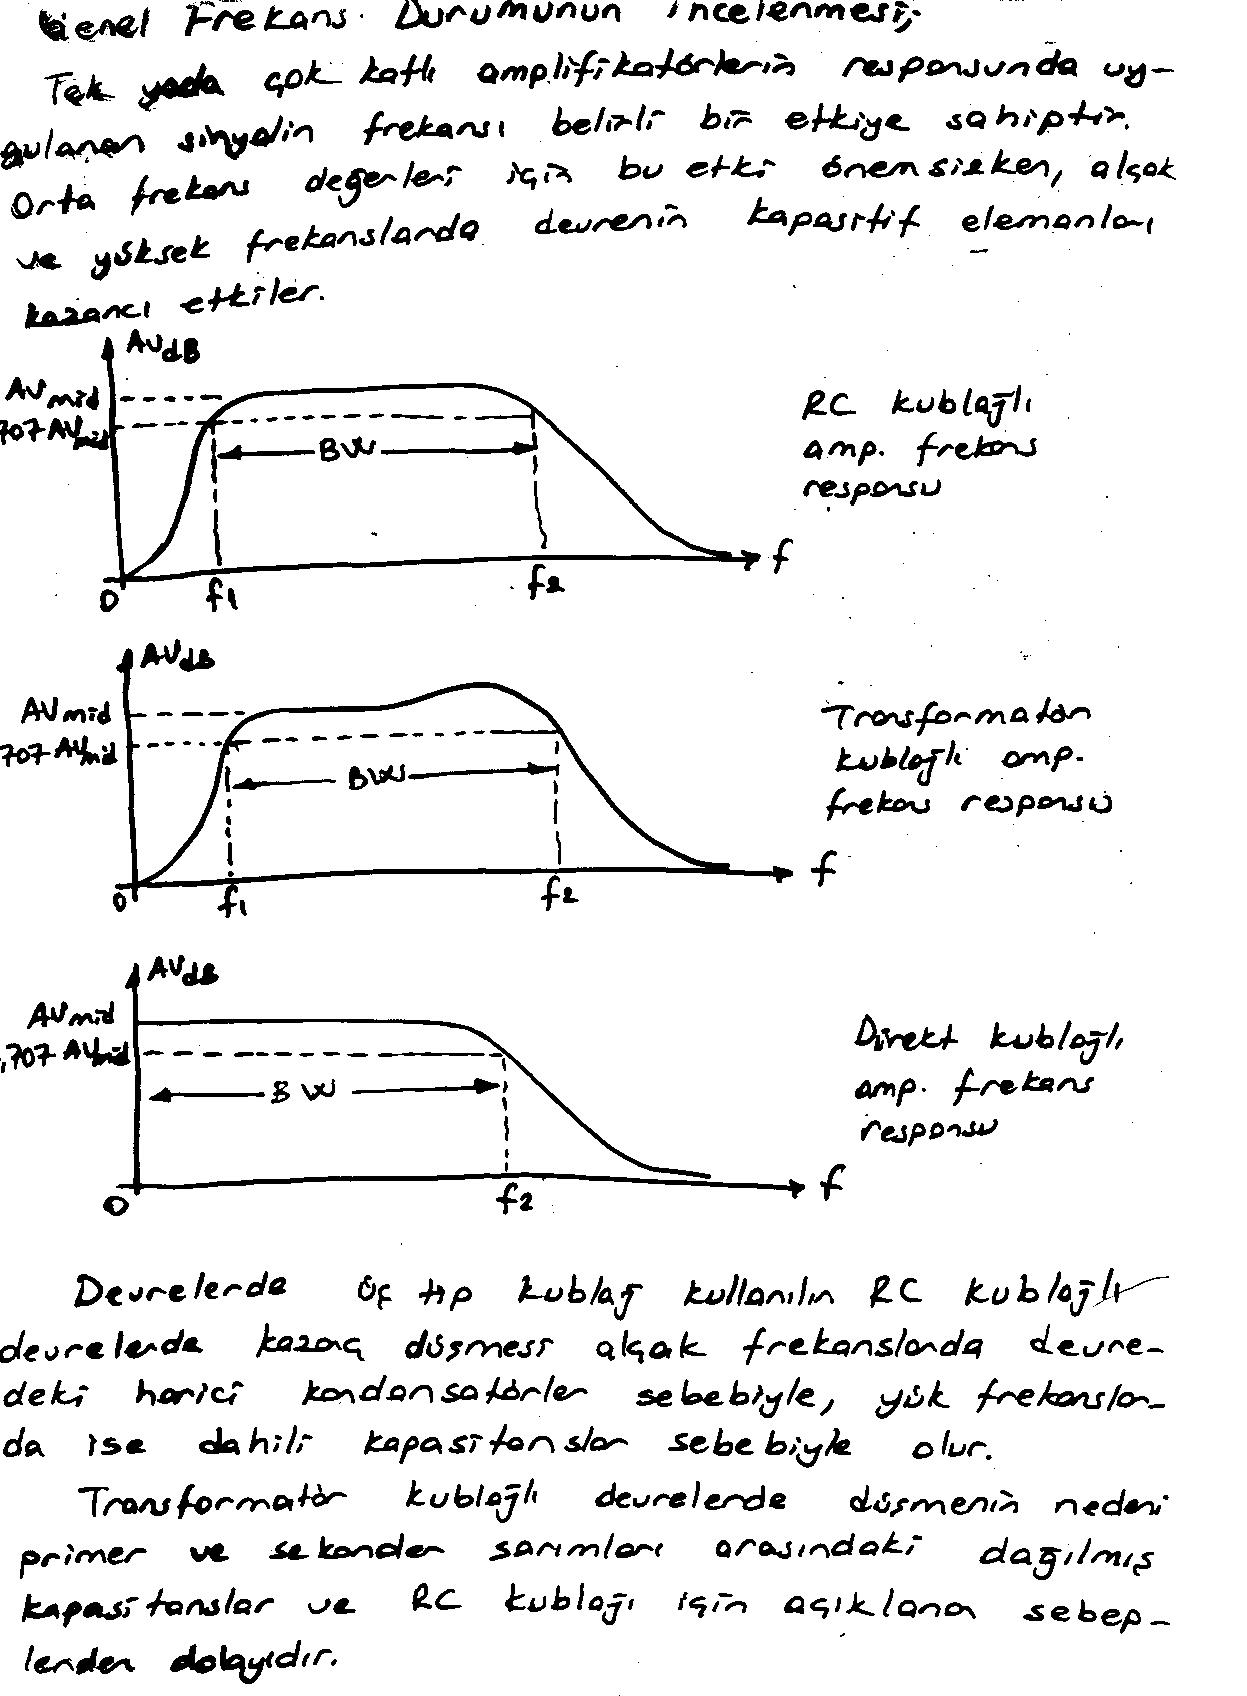 Genel Frekans Durumunun İncelenmesi;
Tek yada çok katlı amplifikatörlerin responsunda uy-
gulanan sinyalin frekansı belirli bir etkiye sahiptir.
Orta frekans değerleri için bu etki önemsizken, alçak
ve yüksek frekanslarda devrenin kapasitif elemanları
kazancı etkiler.
AVdB
AVmid
707 AVmid
BW
f1
f2
f
0
RC kublajlı
amp. frekans
responsu
AVdB
AVmid
707 AVmid
BW
f1
f2
f
0
Transformatör
kublajlı amp.
frekans responsu
AVdB
AVmid
,707 AVmid
BW
f2
f
0
Direkt kublajlı
amp. frekans
responsu
Devrelerde üç tip kublaj kullanılır. RC kublajlı
devrelerde kazanç düşmesi alçak frekanslarda devre-
deki harici kondansatörler sebebiyle, yük frekanslar-
da ise dahili kapasitanslar sebebiyle olur.
Transformatör kublajlı devrelerde düşmenin nedeni
primer ve sekonder sarımları arasındaki dağılmış
kapasitanslar ve RC kublajı için açıklanan sebep-
lerden dolayıdır.